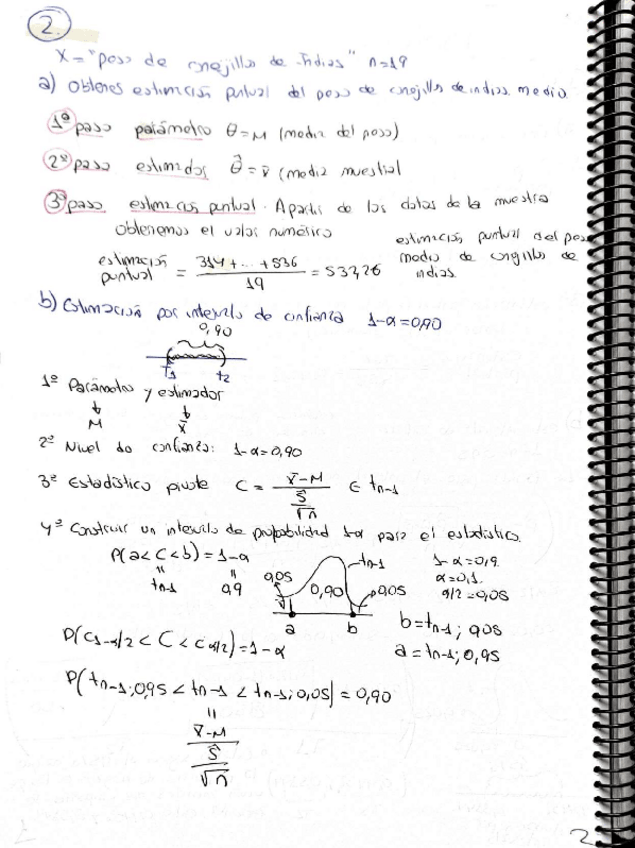 2.
X = "peso de conejillos de Indias" n=19
a) Obtener estimación puntual del peso de conejillos de indias medio.
1º paso parámetro θ = M (media del peso)
2º paso estimador θ̂ = x̄ (media muestral
3º paso estimación puntual. A partir de los datos de la muestra
obtenemos el valor numérico
estimación puntual = (314 + ... + 536)/19 = 537,26 estimación puntual del peso medio de conejillo de indias.
b) Estimación por intervalo de confianza 1-α = 0,90
0,90
T1 t2
1º Parámetro y estimador
M x̄
2º Nivel de confianza: 1-α = 0,90
3º Estadístico pivote C = (x̄-M)/(Ŝ/√n) ∈ tn-1
4º Construir un intervalo de probabilidad 1-α para el estadístico.
P(a < C < b) = 1-α
tn-1 0,9
0,05 0,90 0,05 tn-1
a b
1-α = 0,9
α = 0,1
α/2 = 0,05
b = tn-1; 0,05
a = tn-1; 0,95
P(C1-α/2 < C < Cα/2) = 1-α
P(tn-1; 0,95 < tn-1 < tn-1; 0,05) = 0,90
=
(x̄-M)/(Ŝ/√n)
2